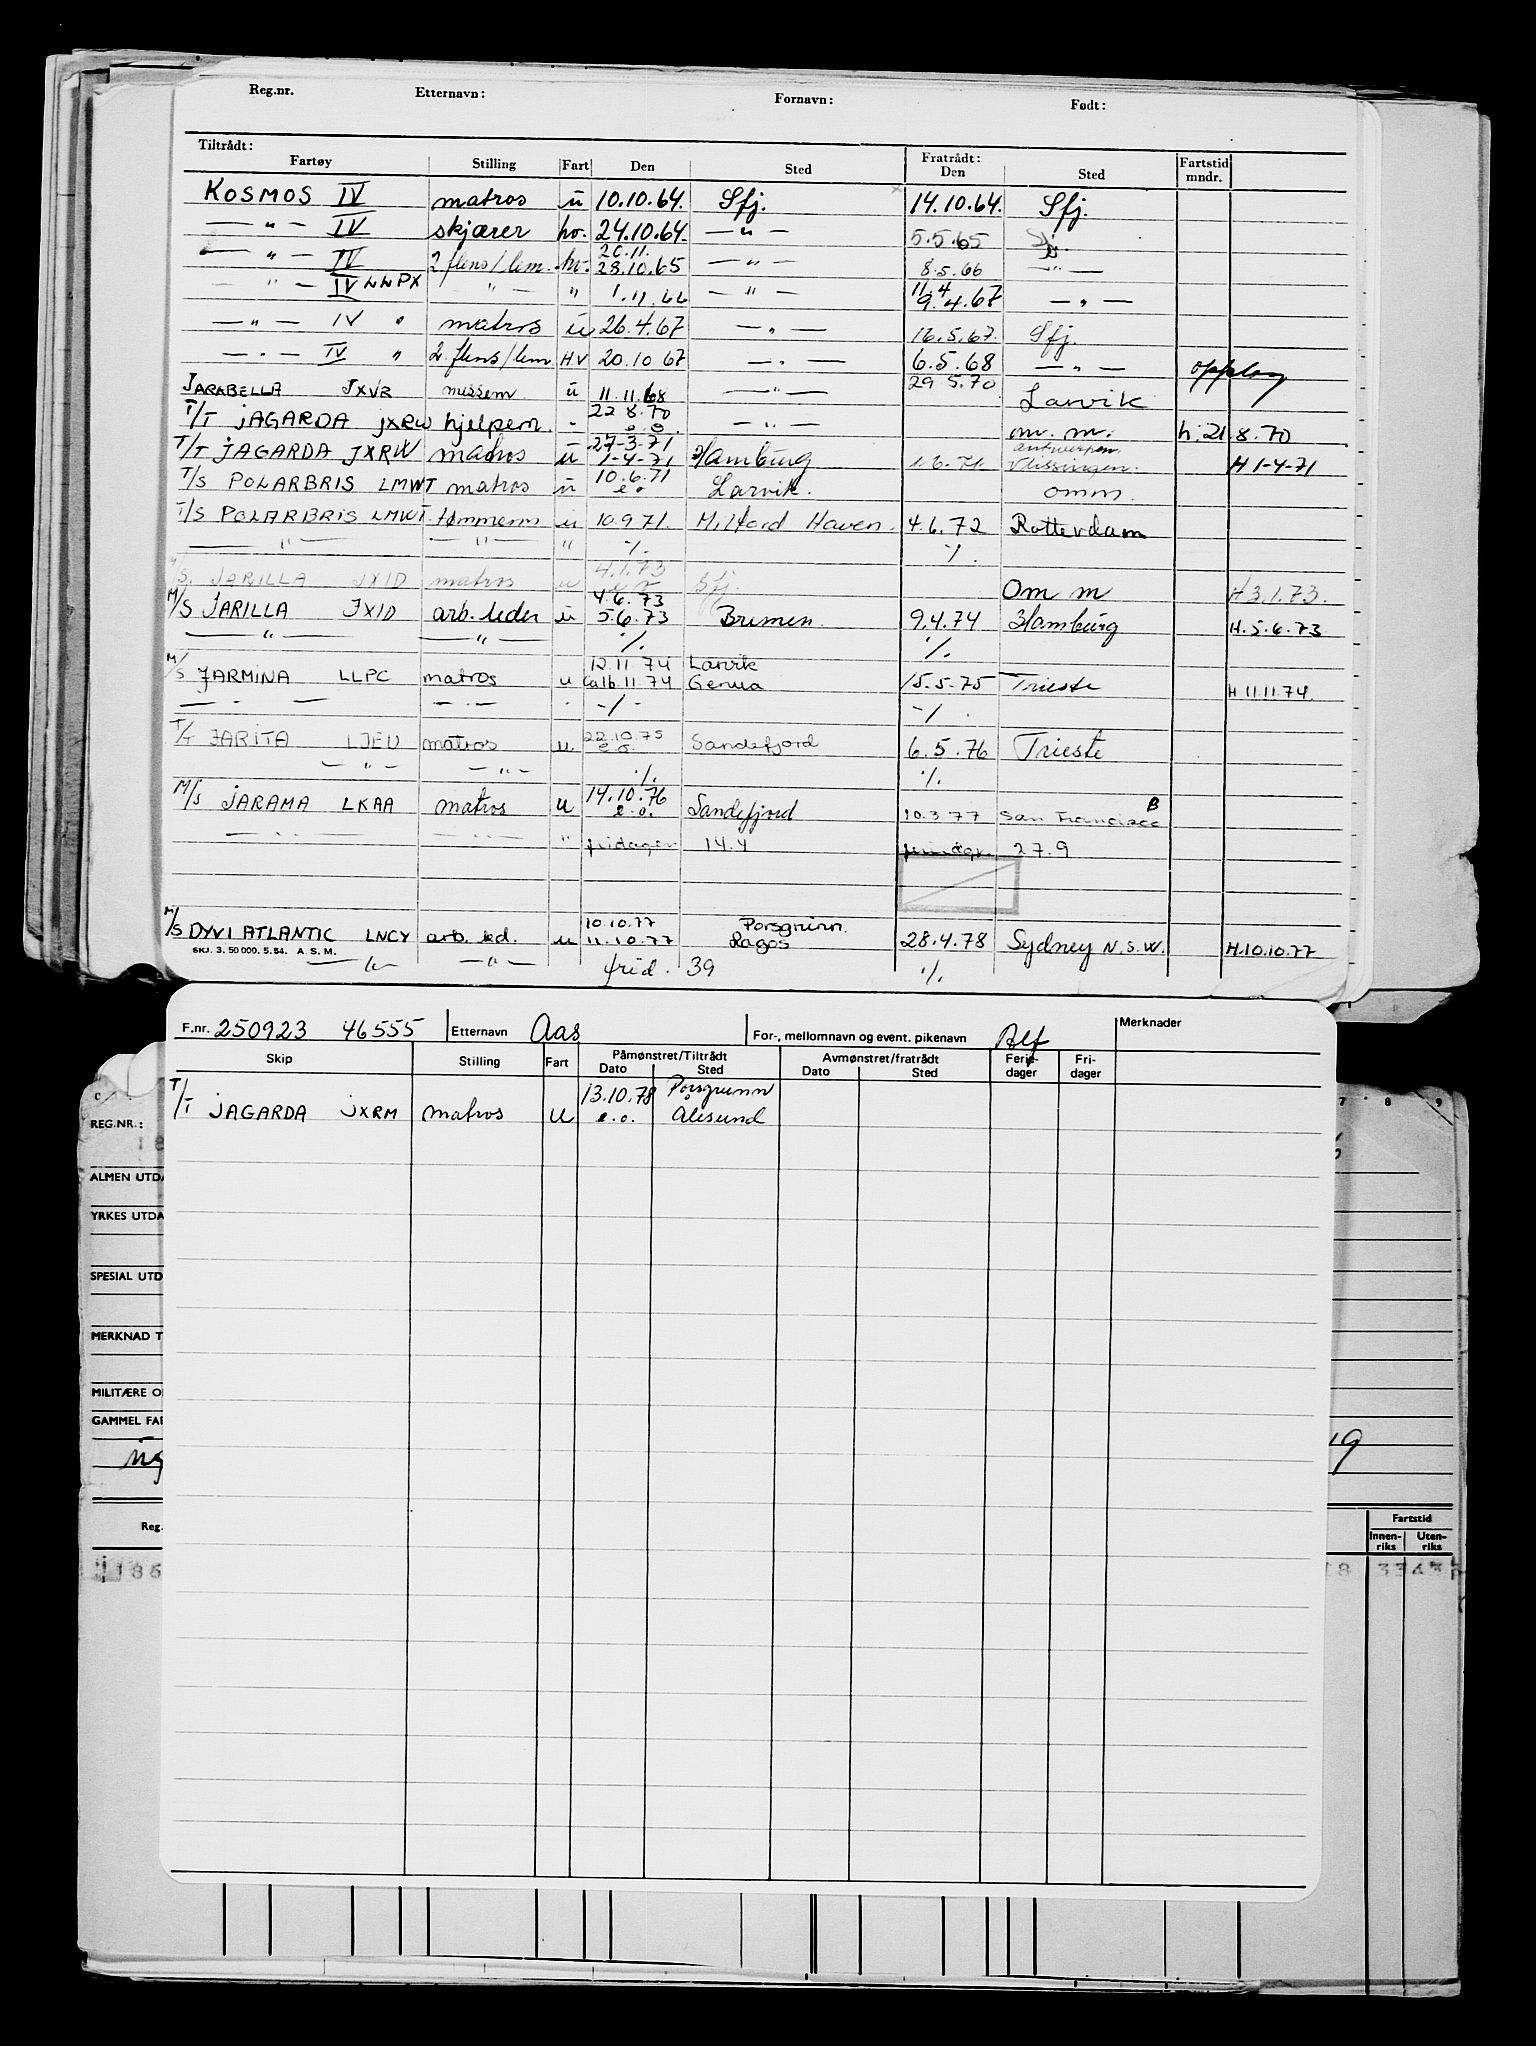 Reg.nr. Etternavn: Fornavn: Født:
Tiltrådt: Fratrådt: Fartstid
Fartøy Stilling Fart Den Sted Den Sted mndr.
KOSMOS IV matros ü 10.10.64. Sfj. 14.10.64. Sfj.
— " — IV skjærer hv. 24.10.64. — " — 5.5.65
20.11.
— " — IV 2 flens/lem. hv. 28.10.65 — " — 8.5.66 — " —
11.4
— " — IV LNPX — " — " 1.11.66 — " — 9.4.67 — " —
— " — IV " matros ü 26.4.67 — " — 16.5.67. Sfj.
— " — IV " 2. flens/lem HV 20.10 67 — " — 6.5.68 — " — opplag
JARABELLA JXVR messem ü 11.11.68 — " — 29 5.70 Larvik
22 8.70
T/T JAGARDA JXRW hjelpem. " e.o. — " — om. m. h.21.8.70
27-3-71 antwerpen
T/T JAGARDA JXRW matros ü 1-4-71 Hamburg 1.6.71. Vlissingen. H 1-4-71
10.6.71
T/S POLARBRIS LMWT matros ü e o Larvik. omm.
T/S POLARBRIS LMWT tømmerm ü 10.9 71. Milford Haven. 4.6.72 Rotterdam
— " — — " — " ·/. ·/.
4.1.73
M/S. JARILLA JXID matros u e o Sfj. Om m H 3.1.73.
4.6.73
M/S JARILLA JXID arb. leder ü 5.6.73 Bremen. 9.4.74 Hamburg H.5.6.73
— " — — " — ·/. ·/.
12.11 74 Larvik
M/S JARMINA LLPC matros u 11.74 Genua 15.5.75 Trieste H 11.11.74.
— . — — . — . -/- -/.
22.10.75
T/T JARITA LJEU matros u e.o. Sandefjord 6.5.76 Trieste
— " — — " — ·/. ·/.
14.10.76 B
M/S JARAMA LKAA matros u e.o. Sandefjord 10.3 77 San Francisco
— " — — " — " fridager 14.4 27.9
10.10.77 Porsgrunn.
M/S DYVI ATLANTIC LNCY arb. led. u 11.10.77 Lagos 28.4.78 Sydney N.S.W. H.10.10.77
SKJ. 3. 50 000. 5. 54. A. S. M.
— " — — " — frid. 39 ·/.
F.nr. 250923 46555 Etternavn Aas For-, mellomnavn og event. pikenavn Alf Merknader
Skip Stilling Fart Påmønstret/Tiltrådt Avmønstret/fratrådt Ferie- Fri-
Dato Sted Dato Sted dager dager
13.10.78 Porsgrunn
T/T JAGARDA JXRM matros U e.o. Ålesund
C 7 8 9
REG.NR.:
ALMEN UTDA
YRKES UTDA
SPESIAL UTD
MERKNAD T
MILITÆRE O
GAMMEL FAR
19
Reg. Fartstid
Innen- Uten-
riks riks